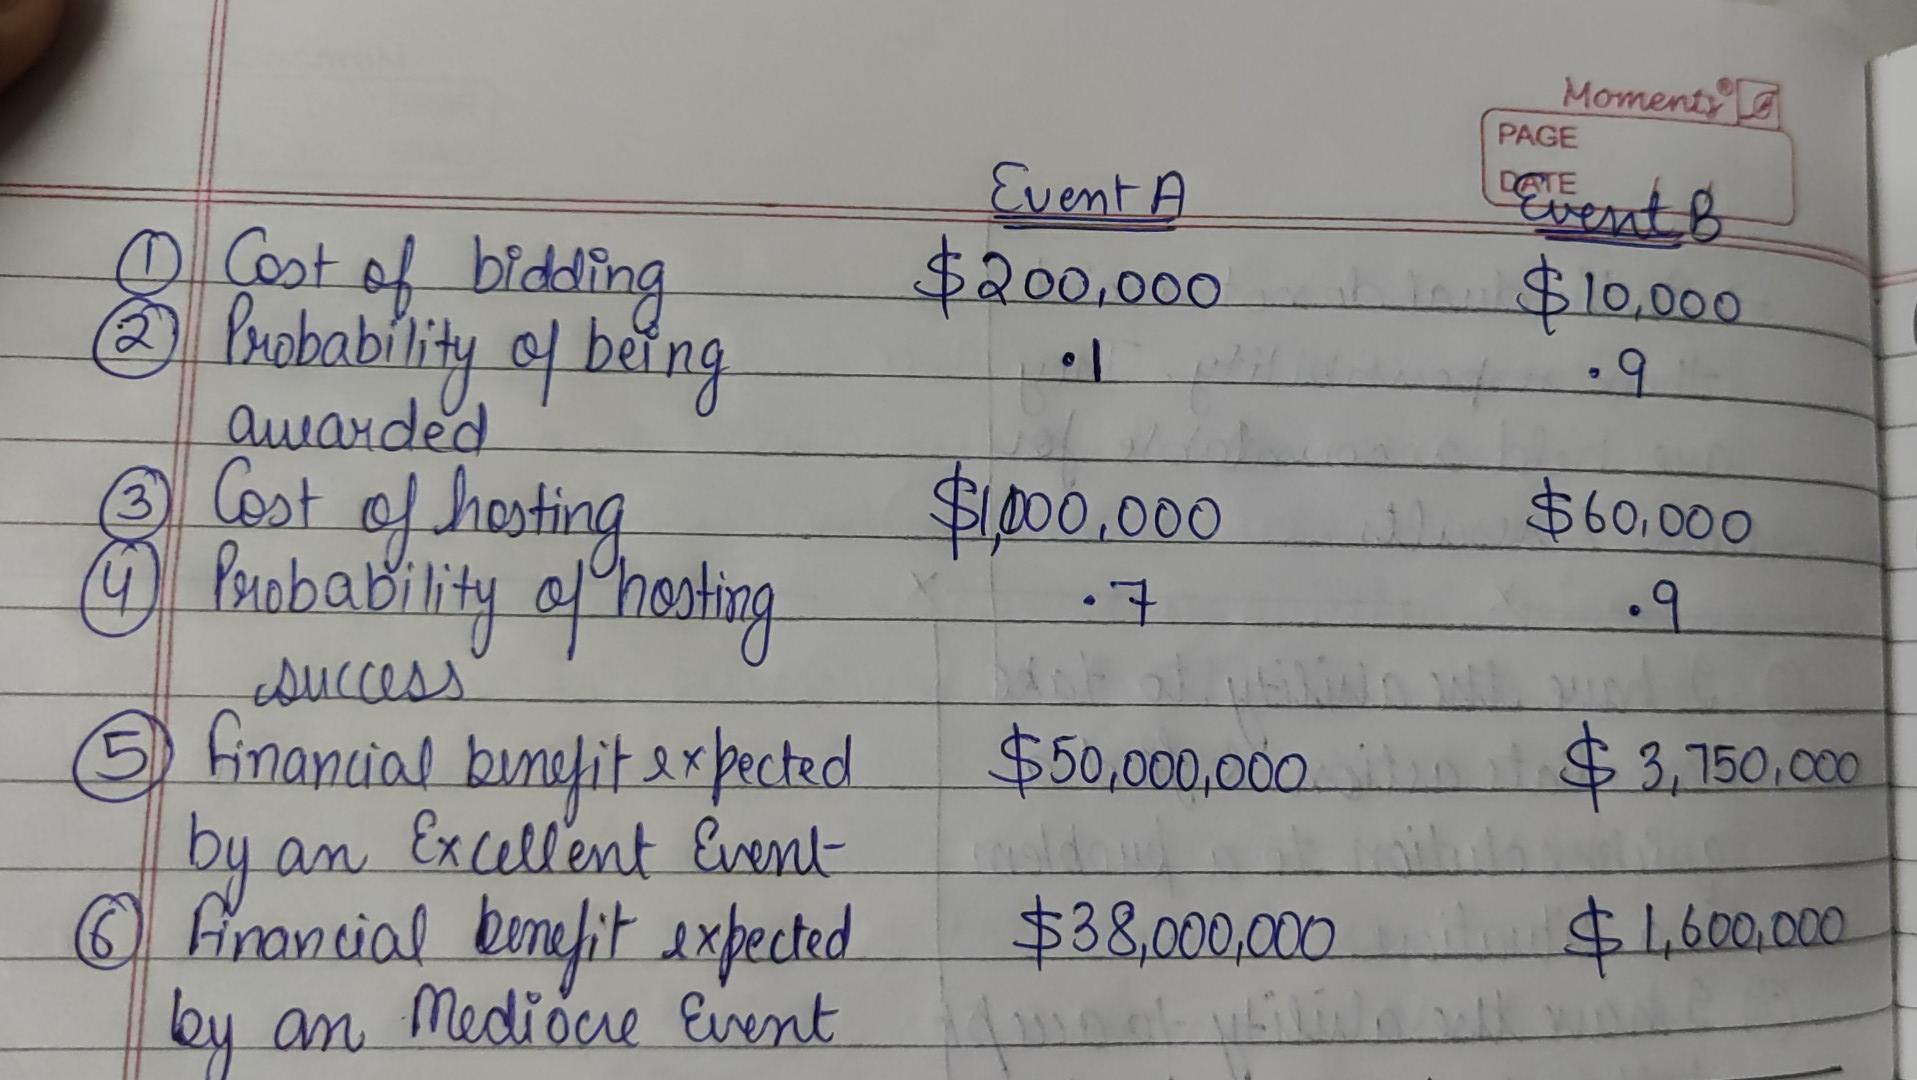 Moments
PAGE
DATE
Event A Event B
① Cost of bidding $200,000 $10,000
② Probability of being .1 .9
awarded
③ Cost of hosting $1,000,000 $60,000
④ Probability of hosting .7 .9
success
⑤ Financial benefit expected $50,000,000 $3,750,000
by an Excellent Event
⑥ Financial benefit expected $38,000,000 $1,600,000
by an Mediocre Event